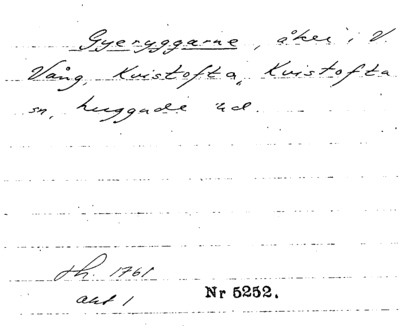 Gyeryggarne, åker i V.
Vång, Kvistofta, Kvistofta
sn, Luggude hd.
sh. 1761
akt 1 Nr 5252.